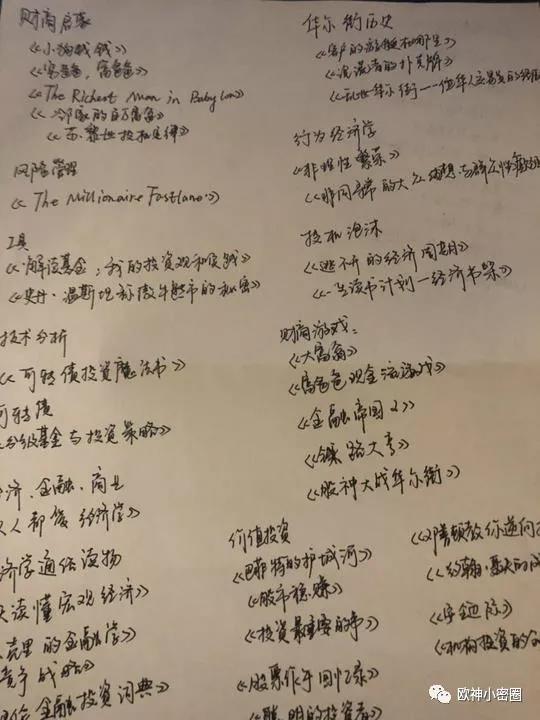 财商启蒙
《小狗钱钱》
《穷爸爸，富爸爸》
《The Richest Man in Babylon》
《邻家的百万富翁》
《苏黎世投机定律》
风险管理
《The Millionaire Fastlane》
工具
《解读基金，我的投资观和实践》
《史丹·温斯坦称傲牛熊市的秘密》
技术分析
《可转债投资魔法书》
可转债
分级基金与投资策略》
济、金融、商业
人人都爱经济学》
济学通俗读物
读懂宏观经济》
克里的金融学》
竞争战略》
金融投资词典》
华尔街历史
《客户的游艇在哪里》
《说谎者的扑克牌》
《乱世华尔街一一位华人交易员的经历
行为经济学
《非理性繁荣》
《非同寻常的大众幻想与群众性癫狂
投机泡沫
《逃不开的经济周期》
《一生读书计划一经济书架》
财商游戏：
《大富翁》
《富爸爸现金流游戏》
《金融帝国2》
《铁路大亨》
《股神大战华尔街》
价值投资
《巴菲特的护城河》
《股市稳赚》
《投资最重要的事》
《股票作手回忆录》
《聪明的投资者》
教你逆向
《约翰·聂夫的成
《安全边际》
《机构投资的创
欧神小密圈